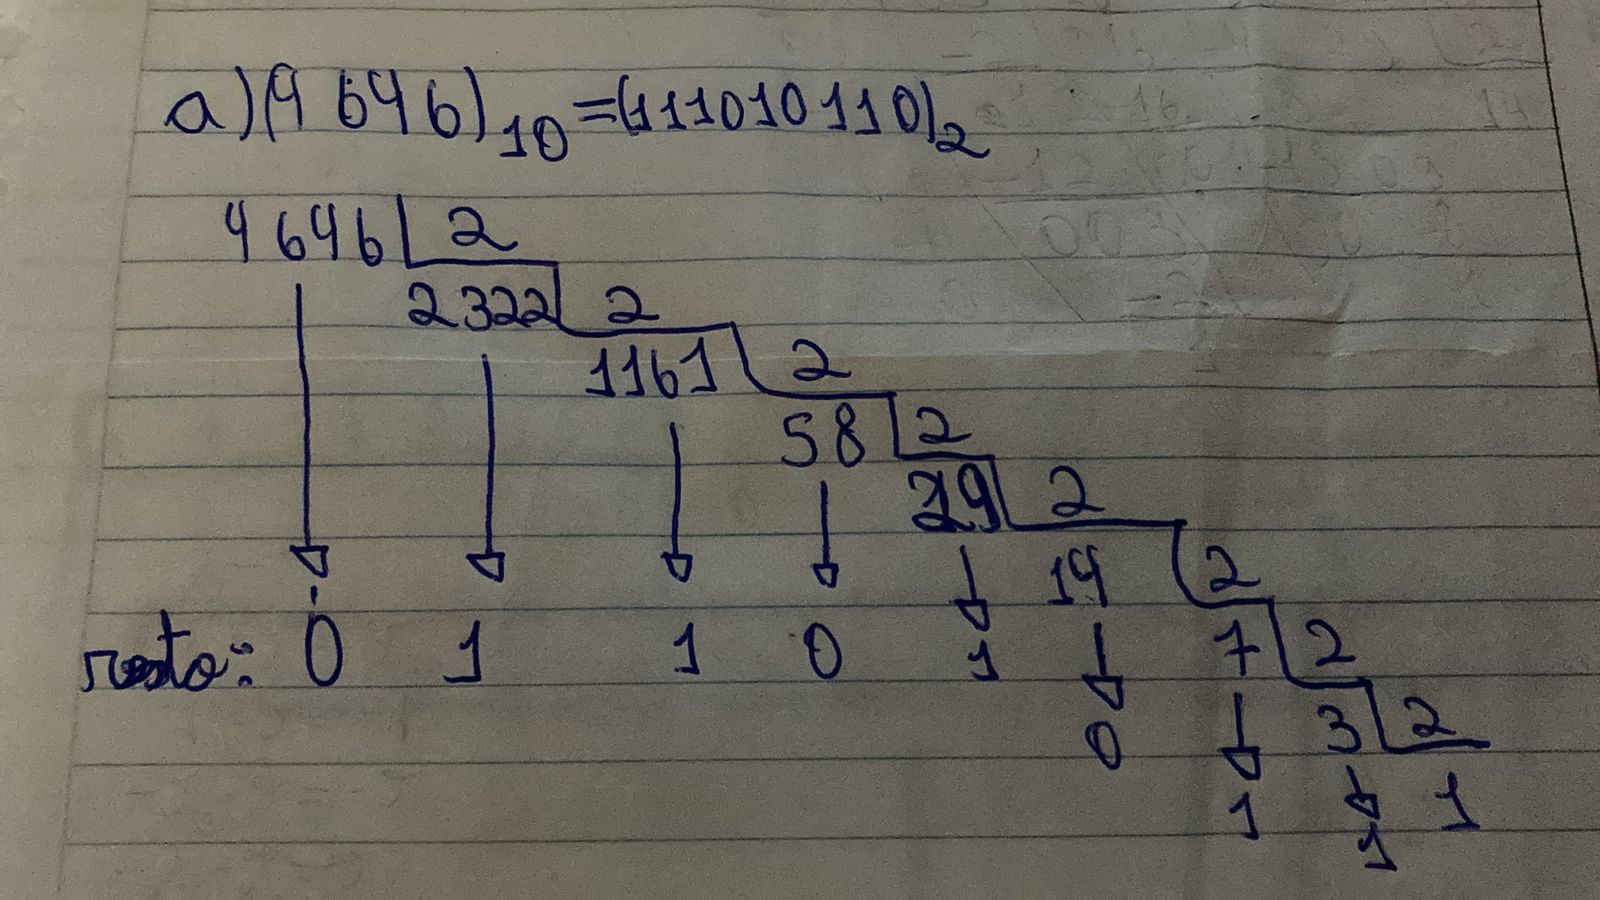 a) (4646)10 = (111010110)2
4646 2
2322 2
1161 2
58 2
29 2
14 2
7 2
3 2
1
resto: 0 1 1 0 1 0 1 1